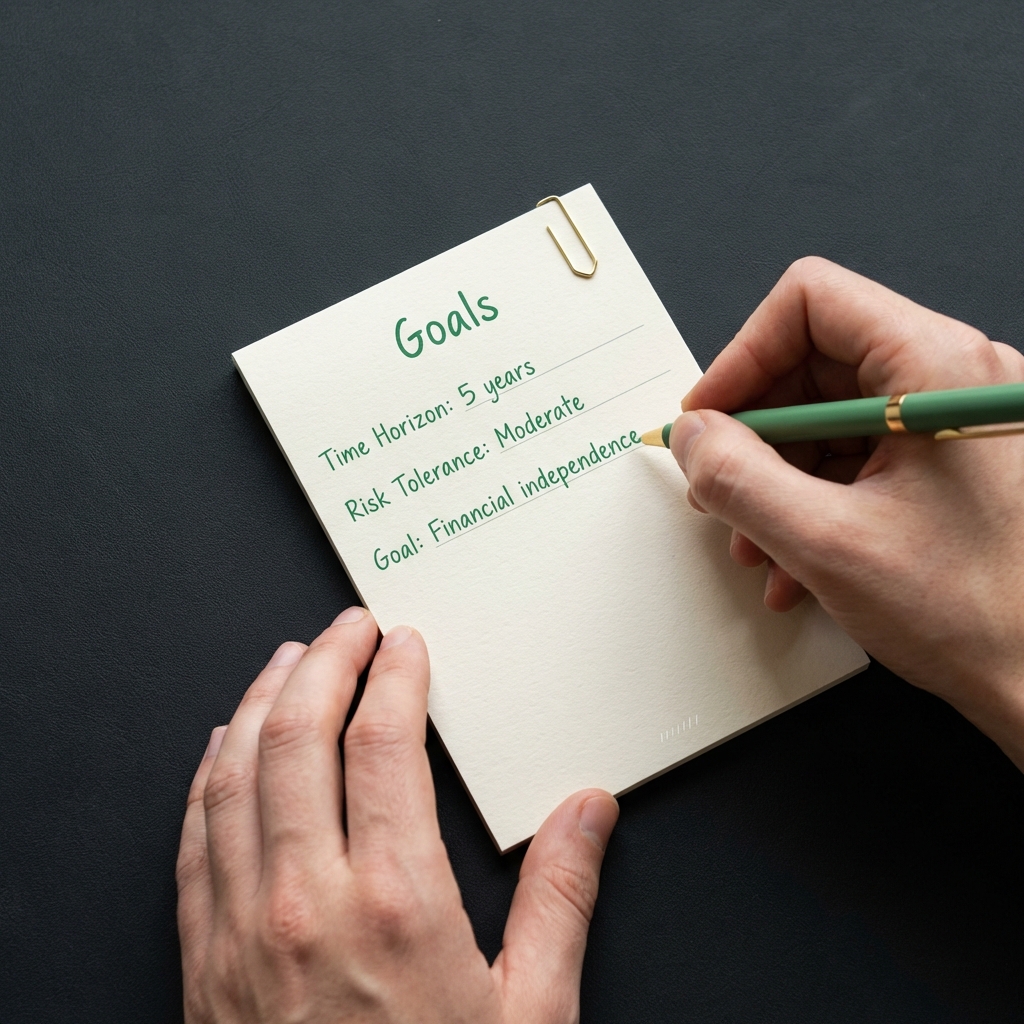 Goals
Time Horizon: 5 years
Risk Tolerance: Moderate
Goal: Financial independence